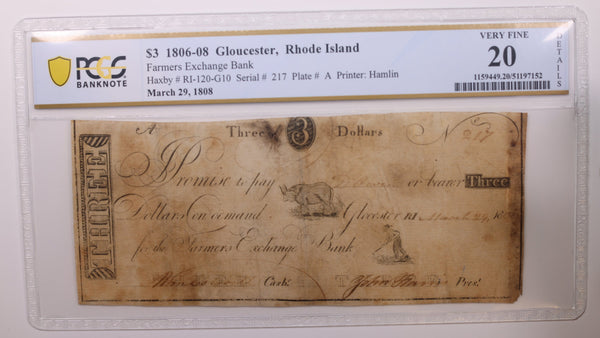 $3 1806-08 Gloucester, Rhode Island
Farmers Exchange Bank
Haxby # RI-120-G10 Serial # 217 Plate # A Printer: Hamlin
March 29, 1808
PCGS
BANKNOTE
VERY FINE
20
DETAILS
1159449.20/51197152
A Three 3 Dollars No 217
THREE
I Promise to pay or bearer Three
Dollars on demand Glocester RI March 29, 180
for the Farmers Exchange Bank
Cashr. John Harris Prest.